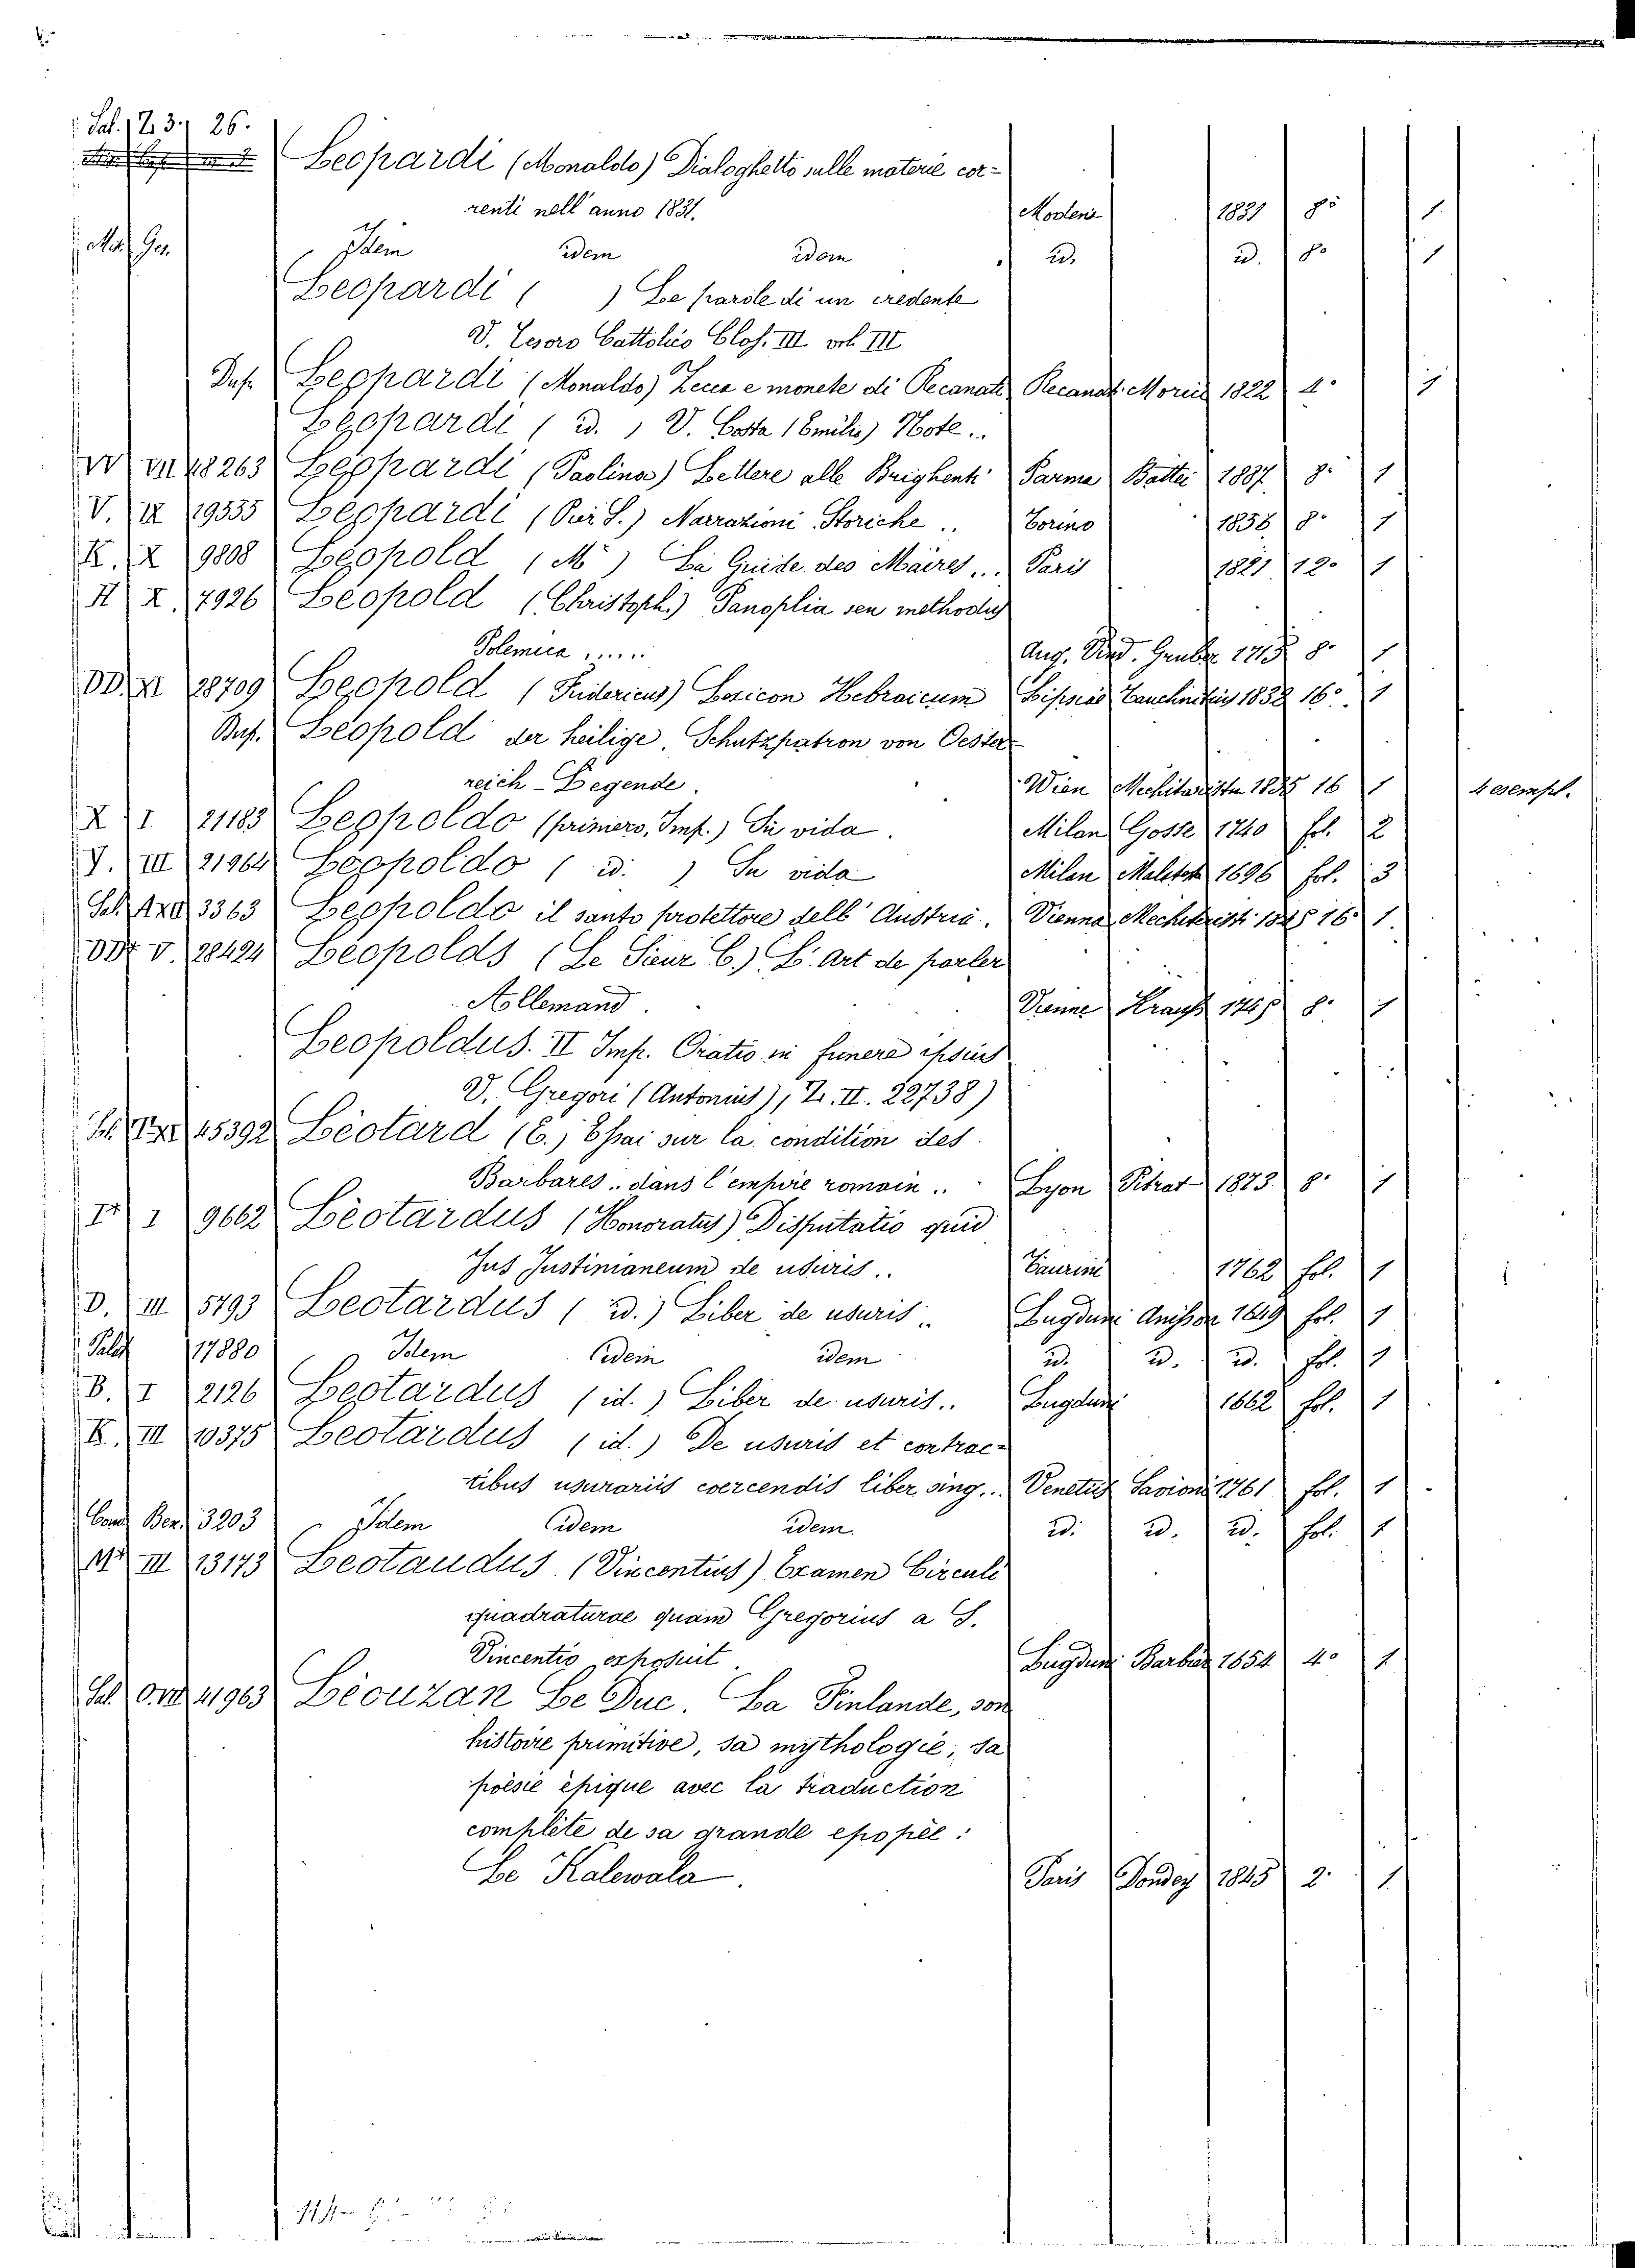 Sal. Z. 3. 26.
Leopardi (Monaldo) Dialoghetto sulle materie cor-
renti nell' anno 1831. Modena 1831 8° 1
Idem idem idem id. id. 8° 1
Leopardi ( ) Le parole di un credente
V. Tesoro Cattolico Clas. III vol. III
Leopardi (Monaldo) Zecca e monete di Recanati Recanat. Morici 1822 4° 1
Leopardi ( id. ) V. Costa (Emilio) Note..
VII 48263 Leopardi (Paolina) Lettere alle Brighenti Parma Battei 1887 8° 1
V. IX 19535 Leopardi (Pier S.) Narrazioni Storiche .. Torino 1838 8° 1
K. X 9808 Léopold (M.) Le Guide des Maires... Paris 1821 12° 1
H X. 7926 Leopold (Christoph.) Panoplia seu methodus
Polemica ...... Aug. Vind. Gruber 8° 1
DD. XI 28709 Leopold (Fridericus) Lexicon Hebraicum Lipsiae 1832 16° 1
Leopold der heilige, Schutzpatron von Oester-
reich - Legende. Wien 16 1 4 esempl.
X I 21183 Leopoldo (primero, Imp.) Su vida. Milan Gosse 1740 fol. 2
Y. III 21964 Leopoldo ( id. ) Su vida Milan 1696 fol. 3
3363 Leopoldo il santo protettore dell' Austria. Vienna 16° 1
V. 28424 Léopolds (Le Sieur C.) L'Art de parler
Allemand. Vienne 8° 1
Leopoldus II Imp. Oratio in funere ipsius
V. Gregori (Antonius), Z. II. 22738)
45392 Léotard (E.) Essai sur la condition des
Barbares .. dans l'empire romain .. Lyon Pitrat 1873 8° 1
I 9662 Leotardus (Honoratus) Disputatio quid
Jus Justinianeum de usuris .. Taurini 1762 fol. 1
D. III 5793 Leotardus ( id. ) Liber de usuris .. Lugduni Anisson 1649 fol. 1
Palat 17880 Idem idem idem id. id. id. fol. 1
B. I 2126 Leotardus (id.) Liber de usuris.. Lugduni 1662 fol. 1
K. III 10375 Leotardus (id.) De usuris et contrac-
tibus usurariis coercendis liber sing... Venetiis Savioni 1761 fol. 1
Ben. 3203 Idem idem idem. id. id. id. fol. 1
III 13173 Leotaudus (Vincentius) Examen Circuli
quadraturae quam Gregorius a S.
Vincentio exposuit. Lugduni Barbier 1654 4° 1
41963 Léouzan Le Duc. La Finlande, son
histoire primitive, sa mythologie, sa
poèsie èpique avec la traduction
complète de sa grande epopèe:
Le Kalewala. Paris Dondey 1845 2. 1